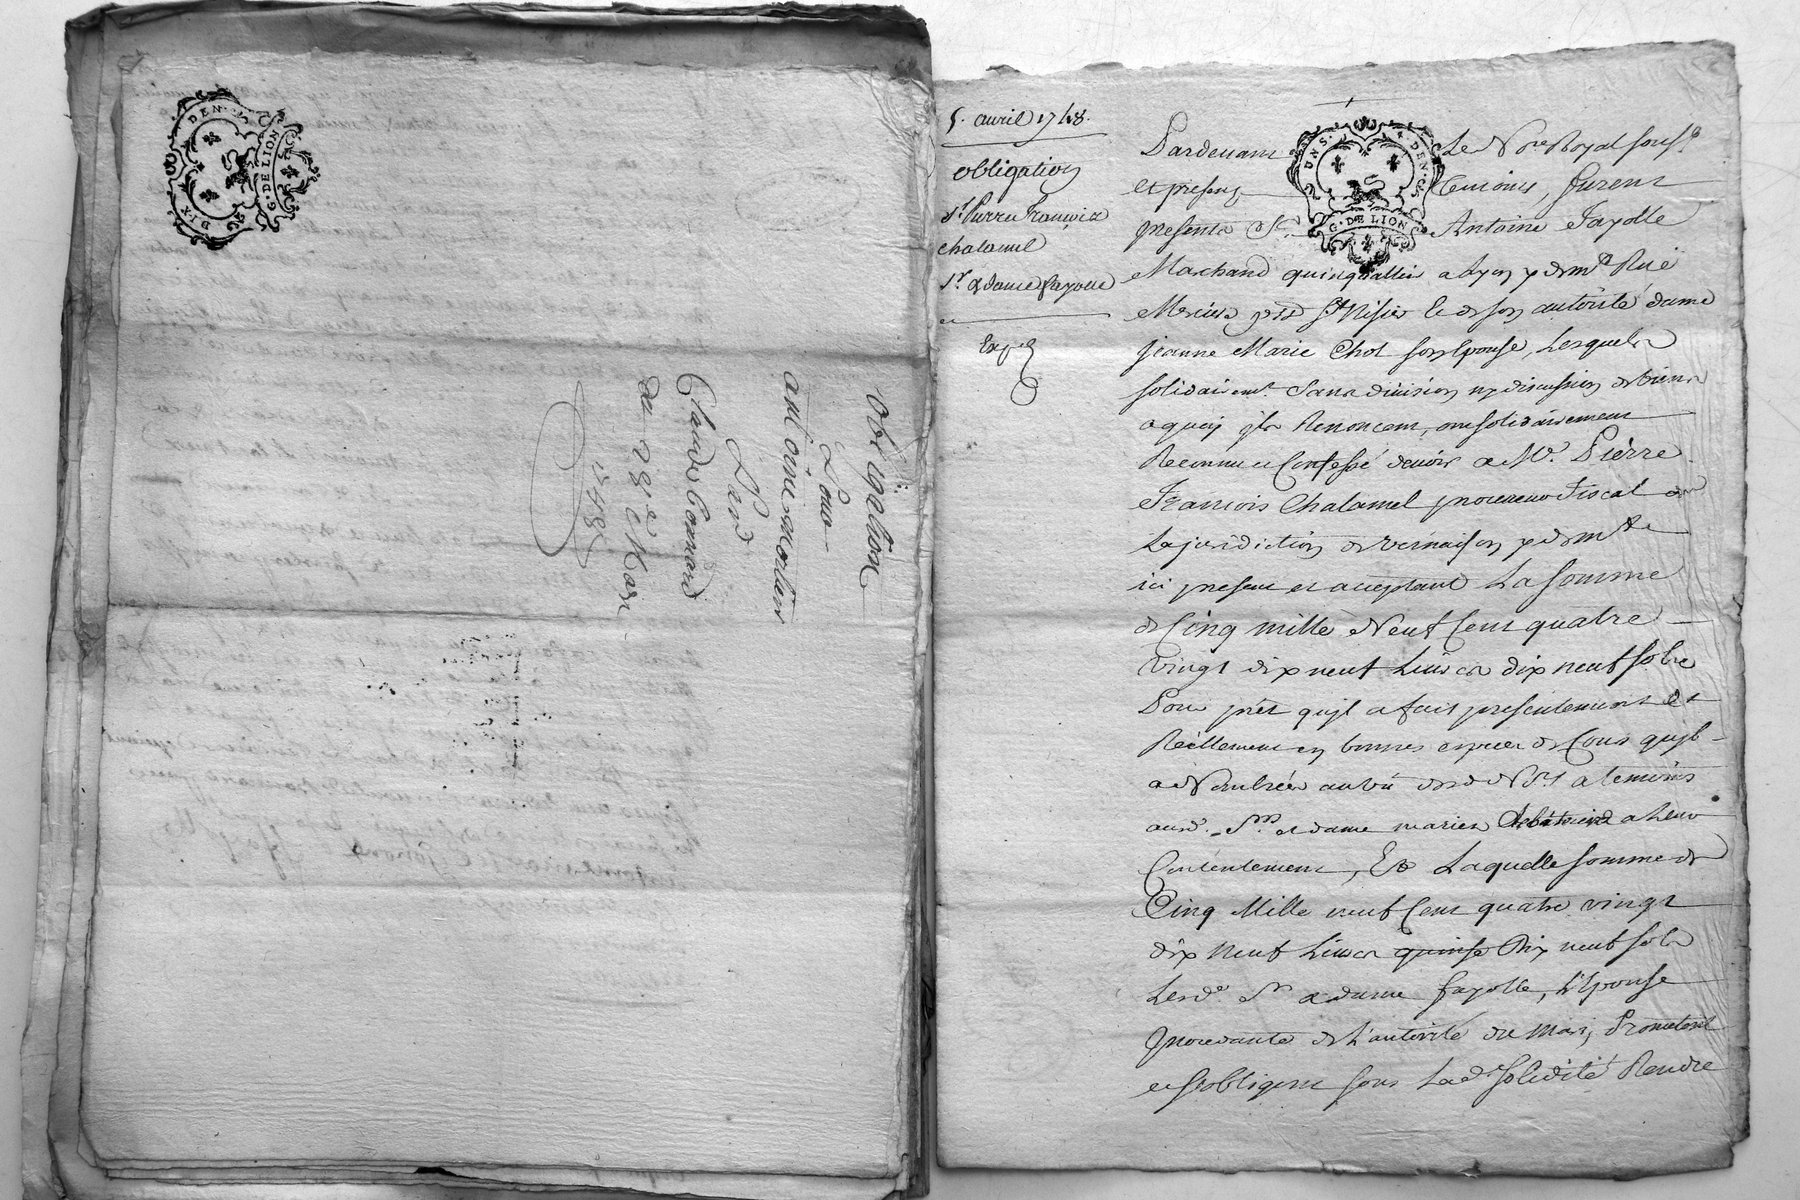 DIX DEN.
G. DE LION
obligation
Pour
antoine morlier
Par
Claude
du 29e Mars
1748
5. avril 1748.
obligation
Sr. Pierre François
chalamel
Sr. & dame fayolle
Expé
Pardevant Le Nore Royal sousé
UN S. DEN.
G. DE LION
et presens temoins, furent
presents Sr. Antoine Fayolle
Marchand quinqallier a Lyon y demt. Rüe
Merciere psse St Nisier & de son autorité dame
Jeanne Marie Chol son Epouse, Lesquels
solidairemt. sans division ny discussion de biens
a quoy ils Renoncent, ont solidairement
Reconnu et Confessé devoir a Mr. Pierre
François Chalamel procureur Fiscal en
La juridiction de vernaison y demt
ici present et acceptant La somme
de Cinq mille Neuf Cent quatre
vingt dix neuf Livres dix neuf sols
Pour prêt qu'il a fait presentement et
Réellement en bonnes especes de Cours qu'il
a Nombrées au vû dud Nore & temoins
auxd. Srs et dame mariés a Leur
Contentement, Laquelle somme de
Cinq Mille neuf Cent quatre vingt
dix Neuf Livres quinse Dix neuf sols
Lesd. Sr & dame fayolle, L'Epouse
procedante de L'autorité du mary, Promettent
et s'obligent sous Lad. solidité Rendre